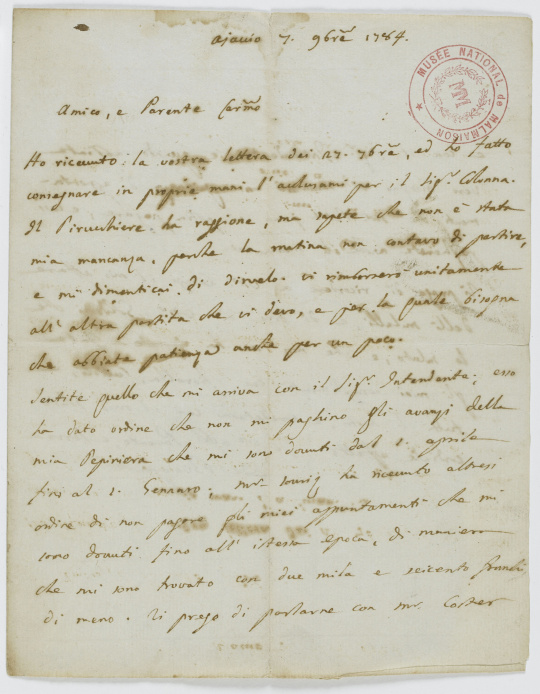 ajaccio 7. 9bre 1784.
MUSÉE NATIONAL de MALMAISON
MM
Amico, e Parente Carmo
Ho ricevuto la vostra lettera dei 27. 7bre, ed ho fatto
consegnare in proprie mani l'acclusami per il Sigr. Colonna.
Il Piruchiere ha raggione, ma sapete che non è stata
mia mancanza, perche la matina non contavo di partire,
e mi dimenticai di dirvelo. vi rimborserò unitamente
all'altra partita che vi devo, e per la quale bisogna
che abbiate patienza anche per un poco.
Sentite quello che mi arriva con il Sigr. Intendente; esso
ha dato ordine che non mi paghino gli avanzi della
mia Pepiniera che mi sono dovuti dal 1. aprile
fino al 1. Gennaro. mr. ha ricevuto altresi
ordine di non pagare gli miei appuntamenti che mi
sono dovuti fino all'istessa epoca, di maniera
che mi sono trovato con due mila e seicento franchi
di meno. Vi prego di parlarne con mr.